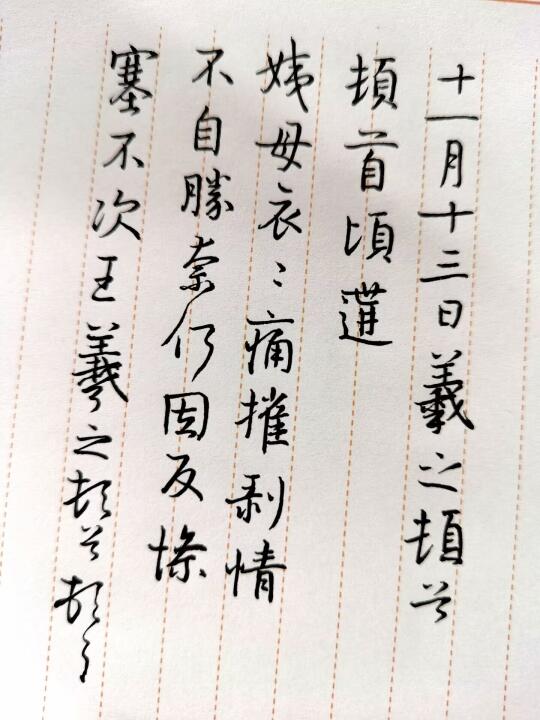 十一月十三日羲之頓首
頓首頃遘
姨母哀〻痛摧剥情
不自勝奈何因反慘
塞不次王羲之頓首頓首